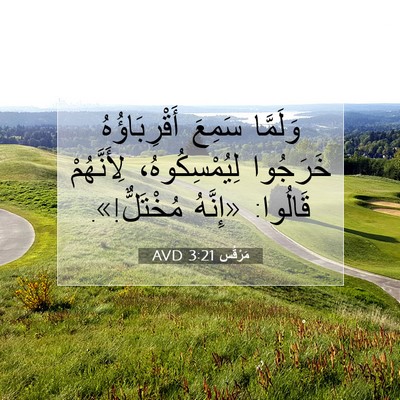 وَلَمَّا سَمِعَ أَقْرِبَاؤُهُ
خَرَجُوا لِيُمْسِكُوهُ، لِأَنَّهُمْ
قَالُوا: «إِنَّهُ مُخْتَلٌّ!».
مَرْقُس 3:21 AVD